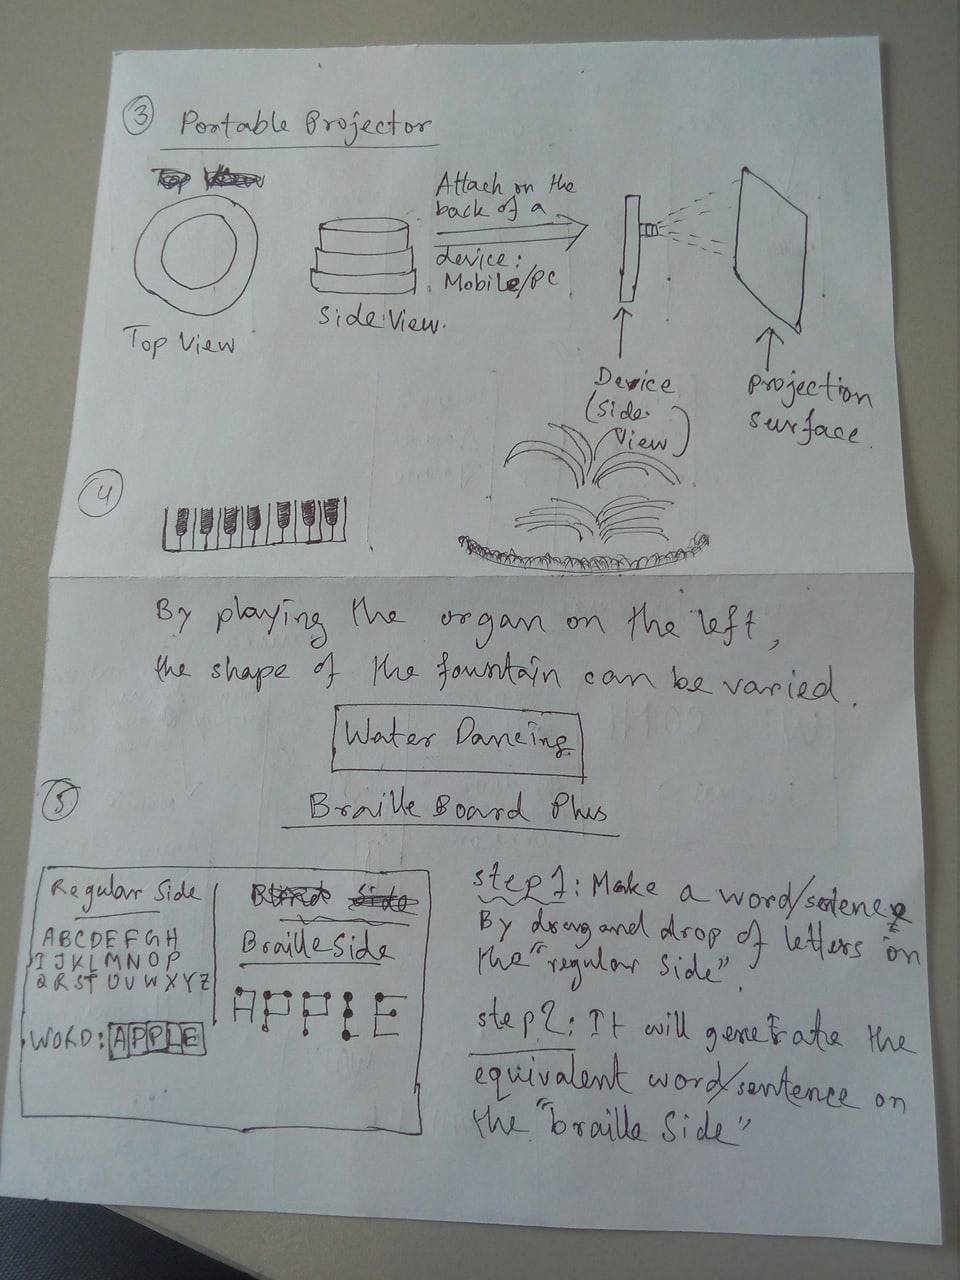 ③ Portable Projector
Top View
Side View.
Attach on the
back of a
device:
Mobile/PC
Device
(Side
View)
projection
surface.
④
By playing the organ on the left,
the shape of the fountain can be varied.
Water Dancing
⑤
Braille Board Plus
Regular Side
ABCDEFGH
IJKLMNOP
QRSTUVWXYZ
WORD: APPLE
Braille Side
APPLE
step 1: Make a word/sentence
By drag and drop of letters on
the "regular side".
step 2: It will generate the
equivalent word/sentence on
the "braille Side"